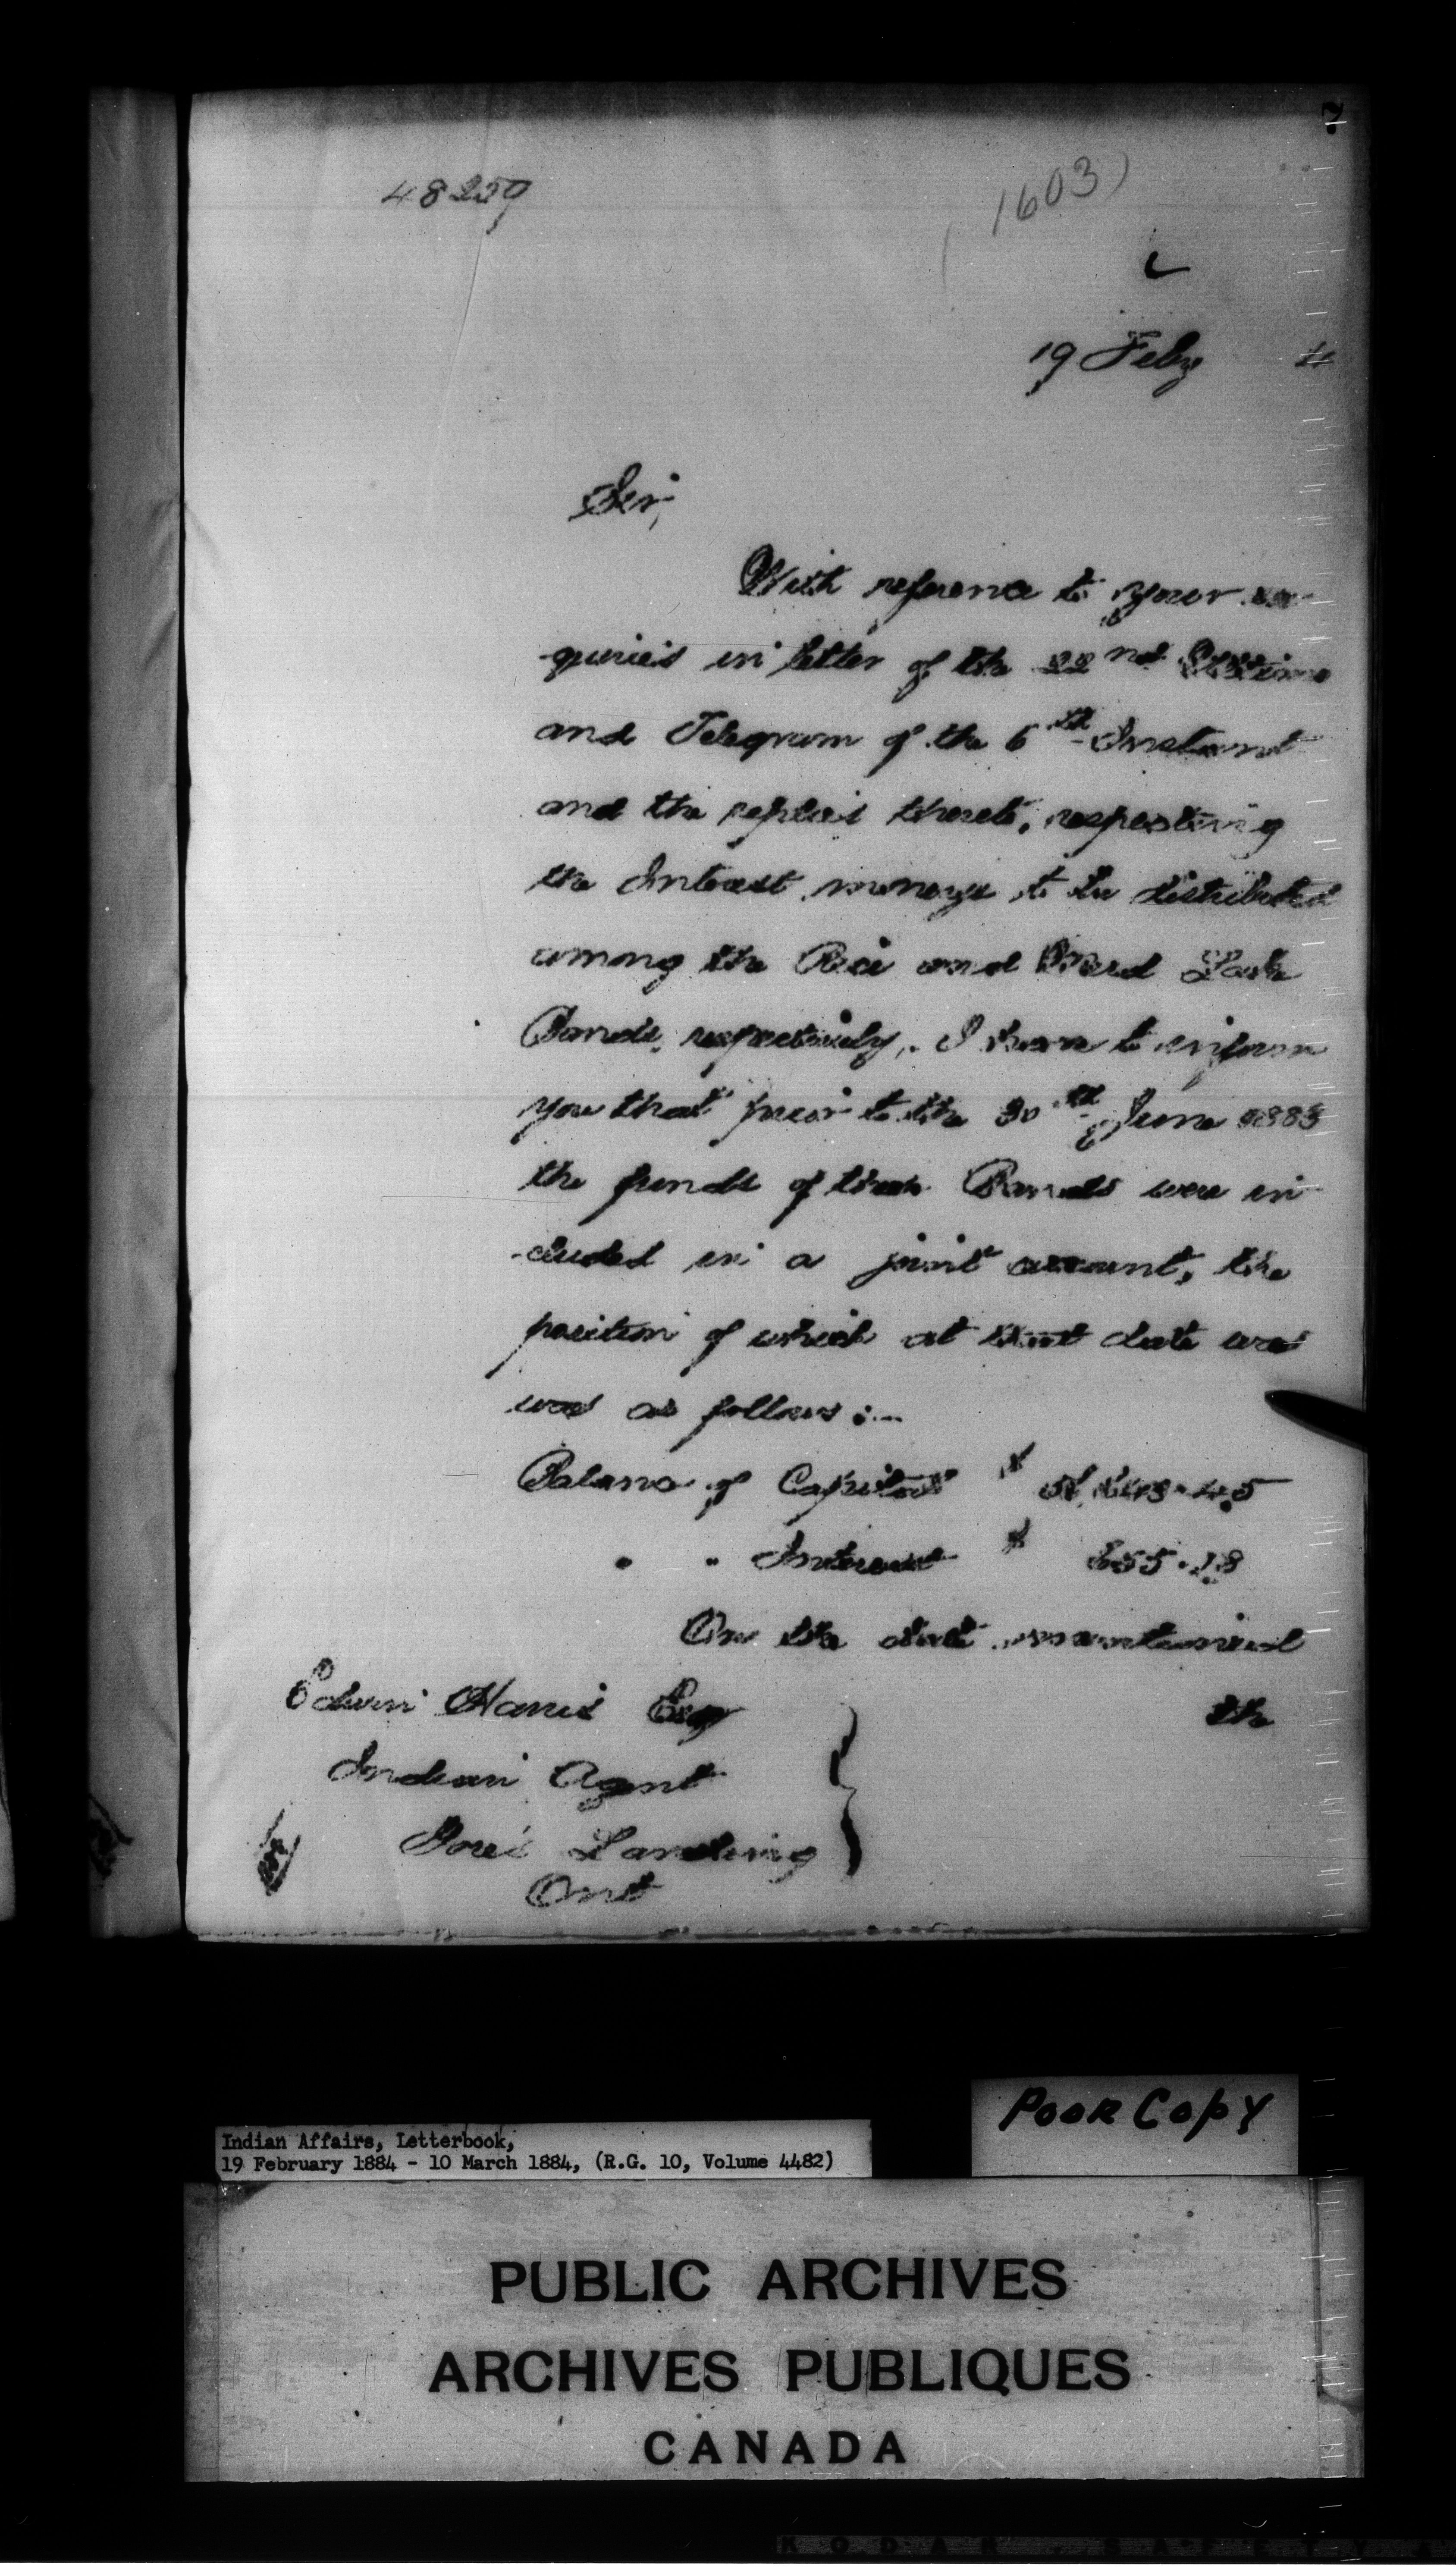 48259
(1603)
19 Feby
Sir,
With reference to your en
quiries in letter of the 22nd Ultimo
and Telegram of the 6th Instant
and the replies thereto, respecting
the Interest moneys to be distributed
among the Rice and Mud Lake
Bands, respectively, I have to inform
you that prior to the 30th June 1883
the funds of these Bands were in
-cluded in a joint account, the
position of which at that date was
was as follows :-
Balance of Capital $
" " Interest $
On the date mentioned
the
Edwin Harris Esq
Indian Agent
Gore's Landing
Ont
Poor Copy
Indian Affairs, Letterbook,
19 February 1884 - 10 March 1884, (R.G. 10, Volume 4482)
PUBLIC ARCHIVES
ARCHIVES PUBLIQUES
CANADA